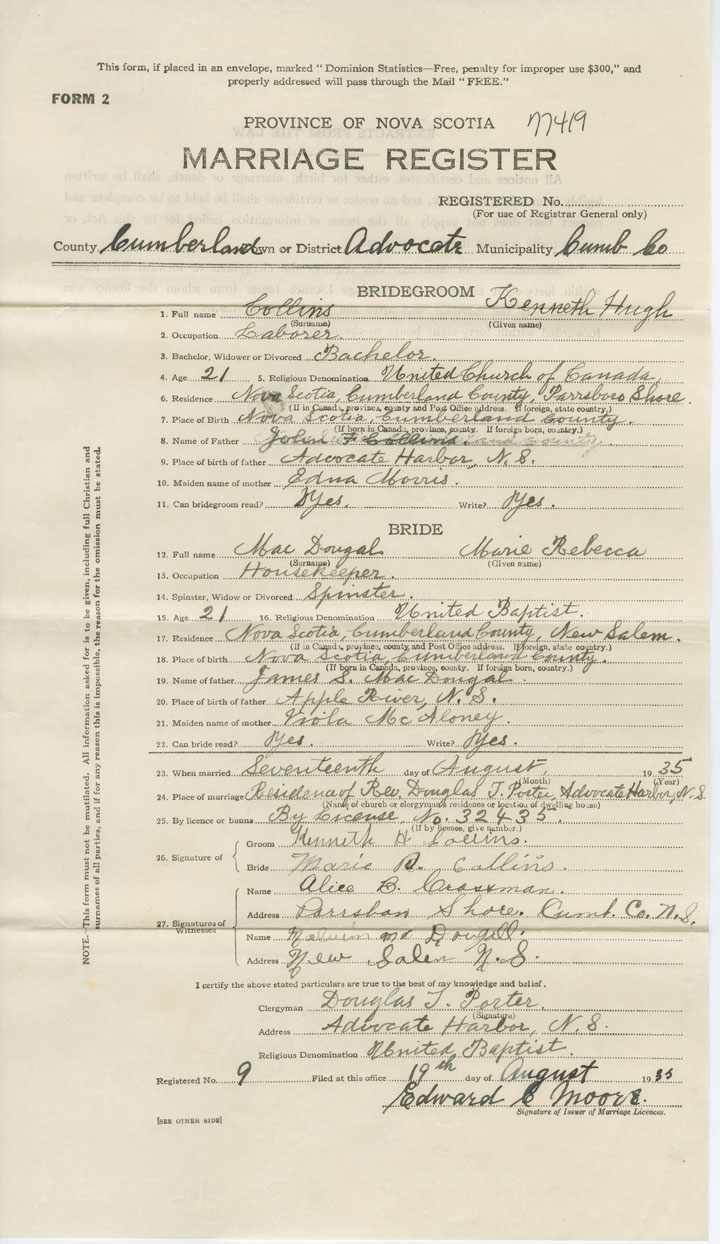 This form, if placed in an envelope, marked " Dominion Statistics—Free, penalty for improper use $300," and
properly addressed will pass through the Mail " FREE."
FORM 2
PROVINCE OF NOVA SCOTIA 77419
MARRIAGE REGISTER
REGISTERED No.
(For use of Registrar General only)
County Cumberland Town or District Advocate Municipality Cumb Co
BRIDEGROOM
1. Full name Collins Kenneth Hugh
(Surname) (Given name)
2. Occupation Laborer.
3. Bachelor, Widower or Divorced Bachelor.
4. Age 21 5. Religious Denomination United Church of Canada
6. Residence Nova Scotia, Cumberland County, Parrsboro Shore.
(If in Canada, province, county and Post Office address. If foreign, state country.)
7. Place of Birth Nova Scotia, Cumberland County.
(If born in Canada, province, county. If foreign born, country.)
8. Name of Father John F Collins.
9. Place of birth of father Advocate Harbor, N.S.
10. Maiden name of mother Edna Morris.
11. Can bridegroom read? Yes. Write? Yes.
BRIDE
12. Full name Mac Dougal Marie Rebecca
(Surname) (Given name)
13. Occupation Housekeeper.
14. Spinster, Widow or Divorced Spinster.
15. Age 21 16. Religious Denomination United Baptist.
17. Residence Nova Scotia, Cumberland County, New Salem.
(If in Canada, province, county, and Post Office address. If foreign, state country.)
18. Place of birth Nova Scotia, Cumberland County.
(If born in Canada, province, county. If foreign born, country.)
19. Name of father James S. Mac Dougal
20. Place of birth of father Apple River, N.S.
21. Maiden name of mother Viola Mc Aloney.
22. Can bride read? Yes. Write? Yes.
23. When married Seventeenth day of August 1935
(Month) (Year)
24. Place of marriage Residence of Rev. Douglas T. Porter, Advocate Harbor, N.S.
(Name of church or clergyman's residence or location of dwelling house)
25. By licence or banns By License, No. 32435.
(If by licence, give number.)
26. Signature of
Groom Kenneth H Collins.
Bride Marie R. Collins.
27. Signatures of Witnesses
Name Alice B. Crossman.
Address Parrsboro Shore. Cumb. Co. N.S.
Name Mc Dougall.
Address New Salem N.S.
I certify the above stated particulars are true to the best of my knowledge and belief.
Clergyman Douglas T. Porter.
(Signature)
Address Advocate Harbor, N.S.
Religious Denomination United Baptist.
Registered No. 9 Filed at this office 19th day of August 1935
Edward C Moore.
Signature of Issuer of Marriage Licences.
[SEE OTHER SIDE]
NOTE.—This form must not be mutilated. All information asked for is to be given, including full Christian and
surnames of all parties, and if for any reason this is impossible, the reason for the omission must be stated.